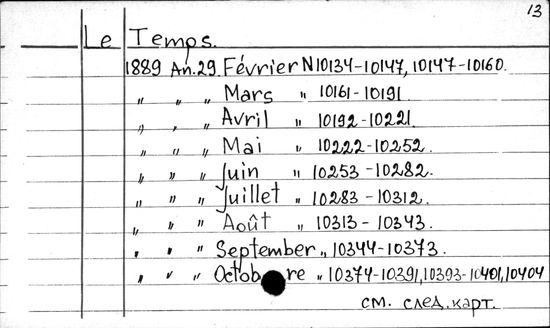 13
Le Temps.
1889 An.29. Février N10134-10147, 10147-10160.
" " " Mars " 10161-10191
" " " Avril " 10192-10221.
" " " Mai " 10222-10252.
" " " Juin " 10253-10282.
" " " Juillet " 10283-10312.
" " " Août " 10313-10343.
" " " September " 10344-10373.
" " " Octobre " 10374-10391, 10393-10401, 10404
см. след. карт.